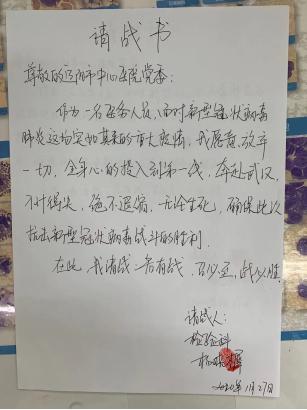 请战书
尊敬的运城市中心医院党委:
作为一名医务人员,面对新型冠状病毒
肺炎这场突如其来的重大疫情,我愿意放弃
一切,全身心的投入到第一线,奔赴武汉,
不计得失,绝不退缩,无论生死,确保此次
抗击新型冠状病毒战斗的胜利.
在此,我请战,若有战,召必至,战必胜.
请战人:
检验科
2020年1月27日